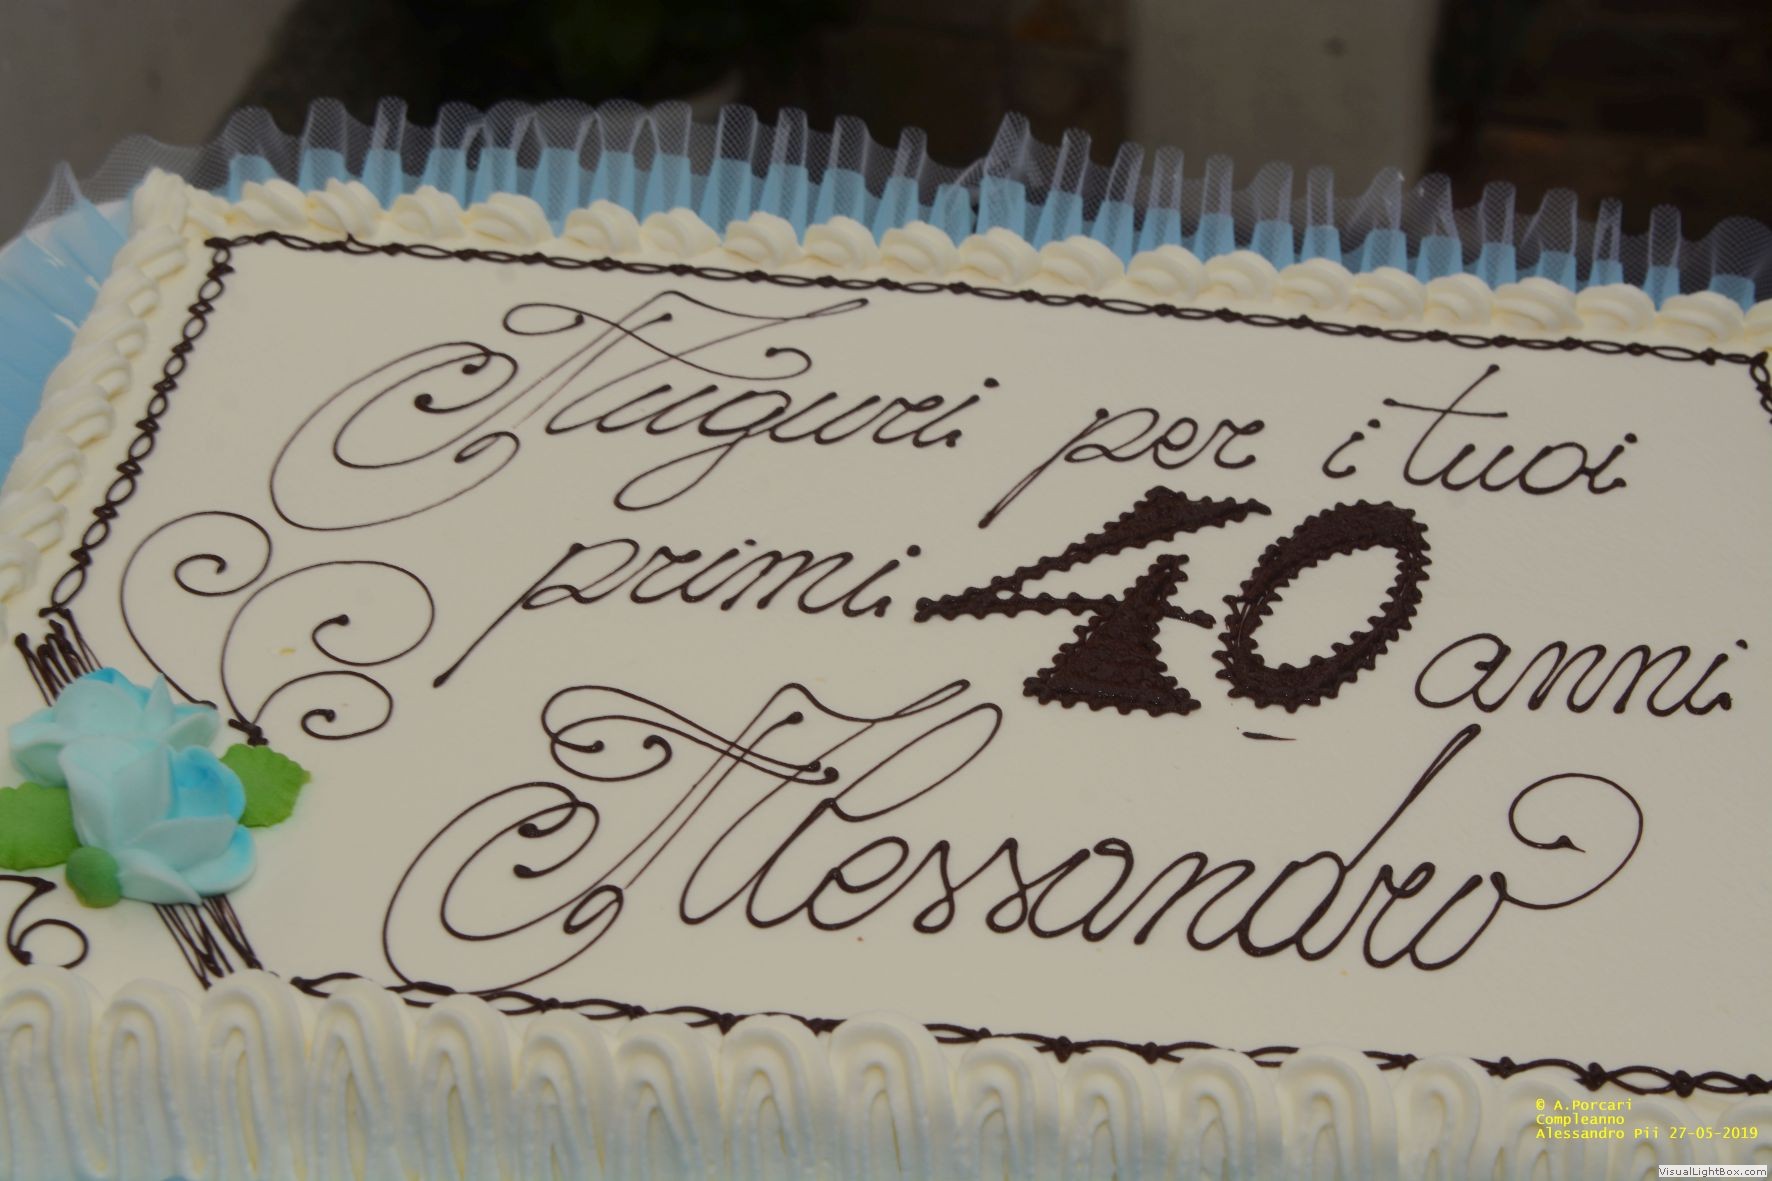 Auguri per i tuoi
primi 40 anni
Alessandro
© A.Porcari
Compleanno
Alessandro Pii 27-05-2019
VisualLightBox.com